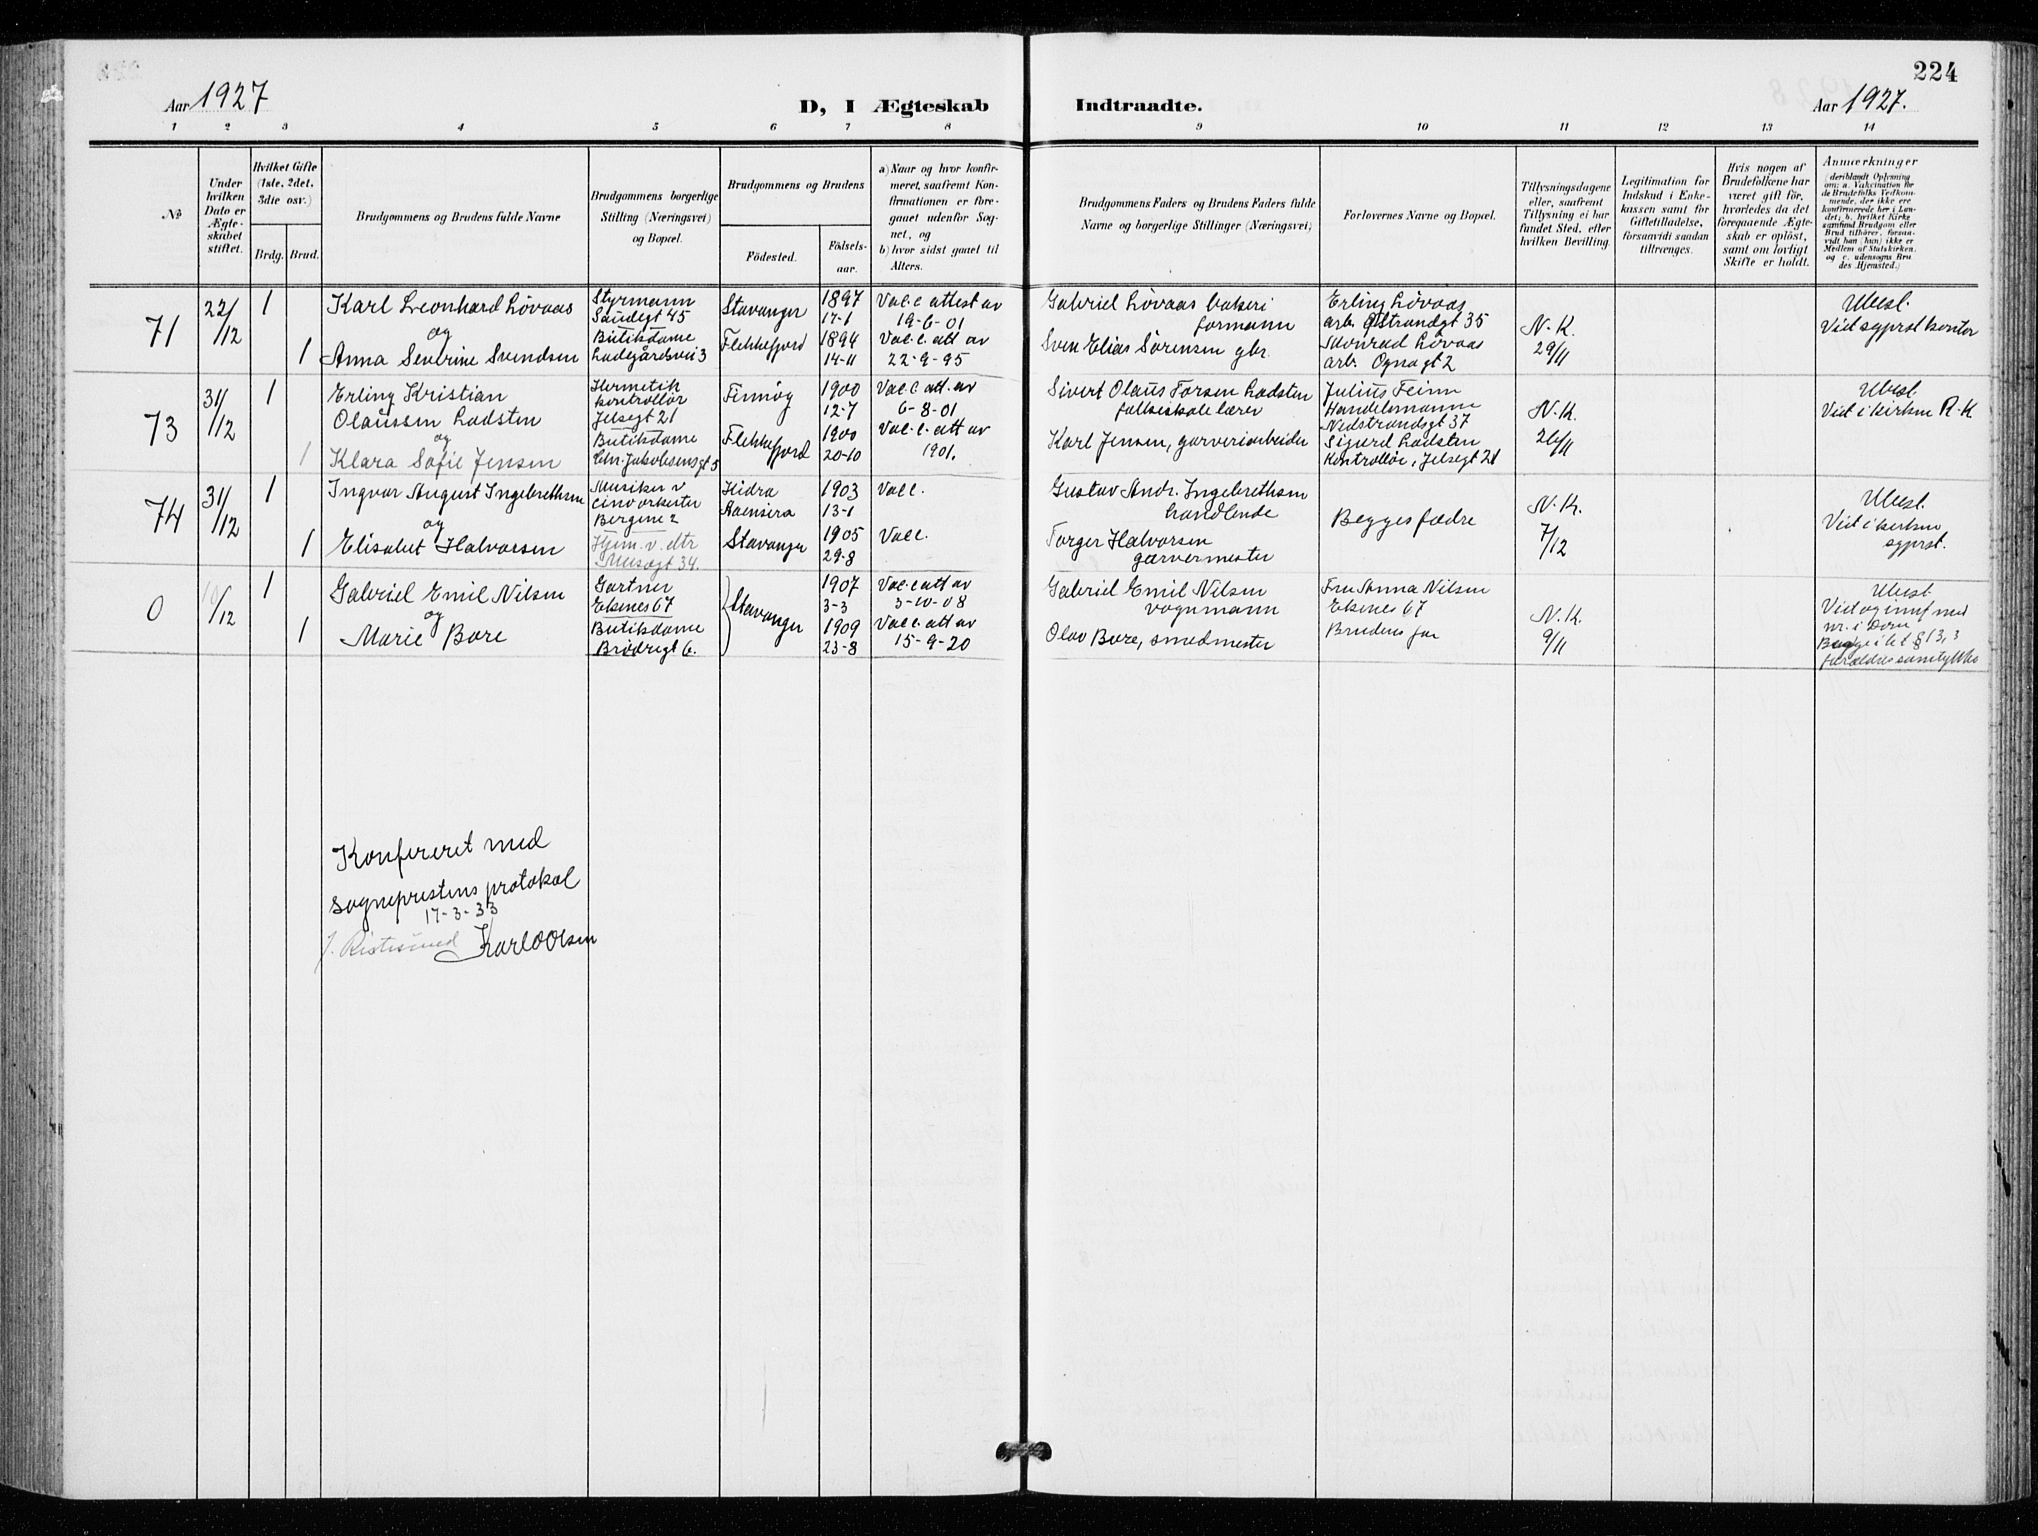 224
Aar 1927
D, I Ægteskab
Indtraadte.
Aar 1927.
1 2 3 4 5 6 7 8 9 10 11 12 13 14
No
Under hvilken Dato er Ægteskabet stiftet.
Hvilket Gifte (1ste, 2det, 3die osv.)
Brdg. Brud.
Brudgommens og Brudens fulde Navne
Brudgommens borgerlige Stilling (Næringsvei) og Bopæl.
Brudgommens og Brudens
Födested.
Födselsaar.
a) Naar og hvor konfirmeret, saafremt Konfirmationen er foregaaet udenfor Sognet, og
b) hvor sidst gaaet til Alters.
Brudgommens Faders og Brudens Faders fulde Navne og borgerlige Stillinger (Næringsvei)
Forlovernes Navne og Bopæl.
Tillysningsdagene eller, saafremt Tillysning ei har fundet Sted, efter hvilken Bevilling.
Legitimation for Indskud i Enkekassen samt for Giftetilladelse, forsaavidt saadan tiltrænges.
Hvis nogen af Brudefolkene har været gift för, hvorledes da det foregaaende Ægteskab er oplöst, samt om lovligt Skifte er holdt.
Anmærkninger
(deriblandt Oplysning om: a. Vakcination for de Brudefolks Vedkommende, der ikke ere konfirmerede her i Landet; b. hvilket Kirkesamfund Brudgom eller Brud tilhörer, forsaavidt han (hun) ikke er Medlem af Statskirken, og c. udensogns Brudes Hjemsted.)
71
22/12
1
Karl Leonhard Lövaas
og
1
Anna Severine Svendsen
Styrmann
Saudegt 45
Butikdame
Ladegårdsvei 3
Stavanger
Flekkefjord
1897
17-1
1894
14-11
Vac.c. attest av
19-6-01
Vac.c. att av
22-9-95
Gabriel Lövaas bakeri
formann
Sven Elias Sörensen gbr.
Erling Lövaas
arb. Östrandgt 35
Konrad Lövaas
arb. Ognagt 2
N. K.
29/11
Ubesl.
Viet sgprst kontor
73
31/12
1
Erling Kristian
Olaussen Ladsten
og
1
Klara Sofie Jensen
Hermetik
kontrollör
Jelsegt 21
Butikdame
Chr. Jakobsensgt 5
Finnöy
Flekkefjord
1900
12-7
1900
20-10
Vac.c. att. av
6-8-01
Vac.c. att av
1901.
Sivert Olaus Torsen Ladsten
folkeskolelærer
Karl Jensen, garveriarbeider
Julius Feinn
Handelsmann
Nedstrandsgt 37
Sigurd Ladsten
Kontrollör, Jelsegt 21
N. K.
26/11
Ubesl.
Viet i kirken R-K
74
31/12
1
Ingvar August Ingebrethsen
og
1
Elisabet Halvorsen
Musiker v
cinoorkester
Bergene 2
Hjem. v. dtr
Musegt 34.
Hidra
Stavanger
1903
13-1
1905
29-8
Vac c.
Vac c.
Gustav Andr. Ingebrethsen
handlende
Torger Halvorsen
garvermester
Begges fædre
N. K.
7/12
Ubesl.
Viet i kirken
sgprst.
0
10/12
1
Gabriel Emil Nilsen
og
1
Marie Bore
Gartner
Ekenes 67
Butikdame
Brödregt 6.
Stavanger
1907
3-3
1909
23-8
Vac.c att av
3-10-08
Vac.c. att av
15-9-20
Gabriel Emil Nilsen
vognmann
Olav Bore, smedmester
Fru Anna Nilsen
Ekenes 67
Brudens far
N. K.
9/11
Ubesl.
Viet og innf med
nr. i Dom
foreldres samtykke
Konfereret med
sogneprestens protokol
17-3-33
Karl Olsen